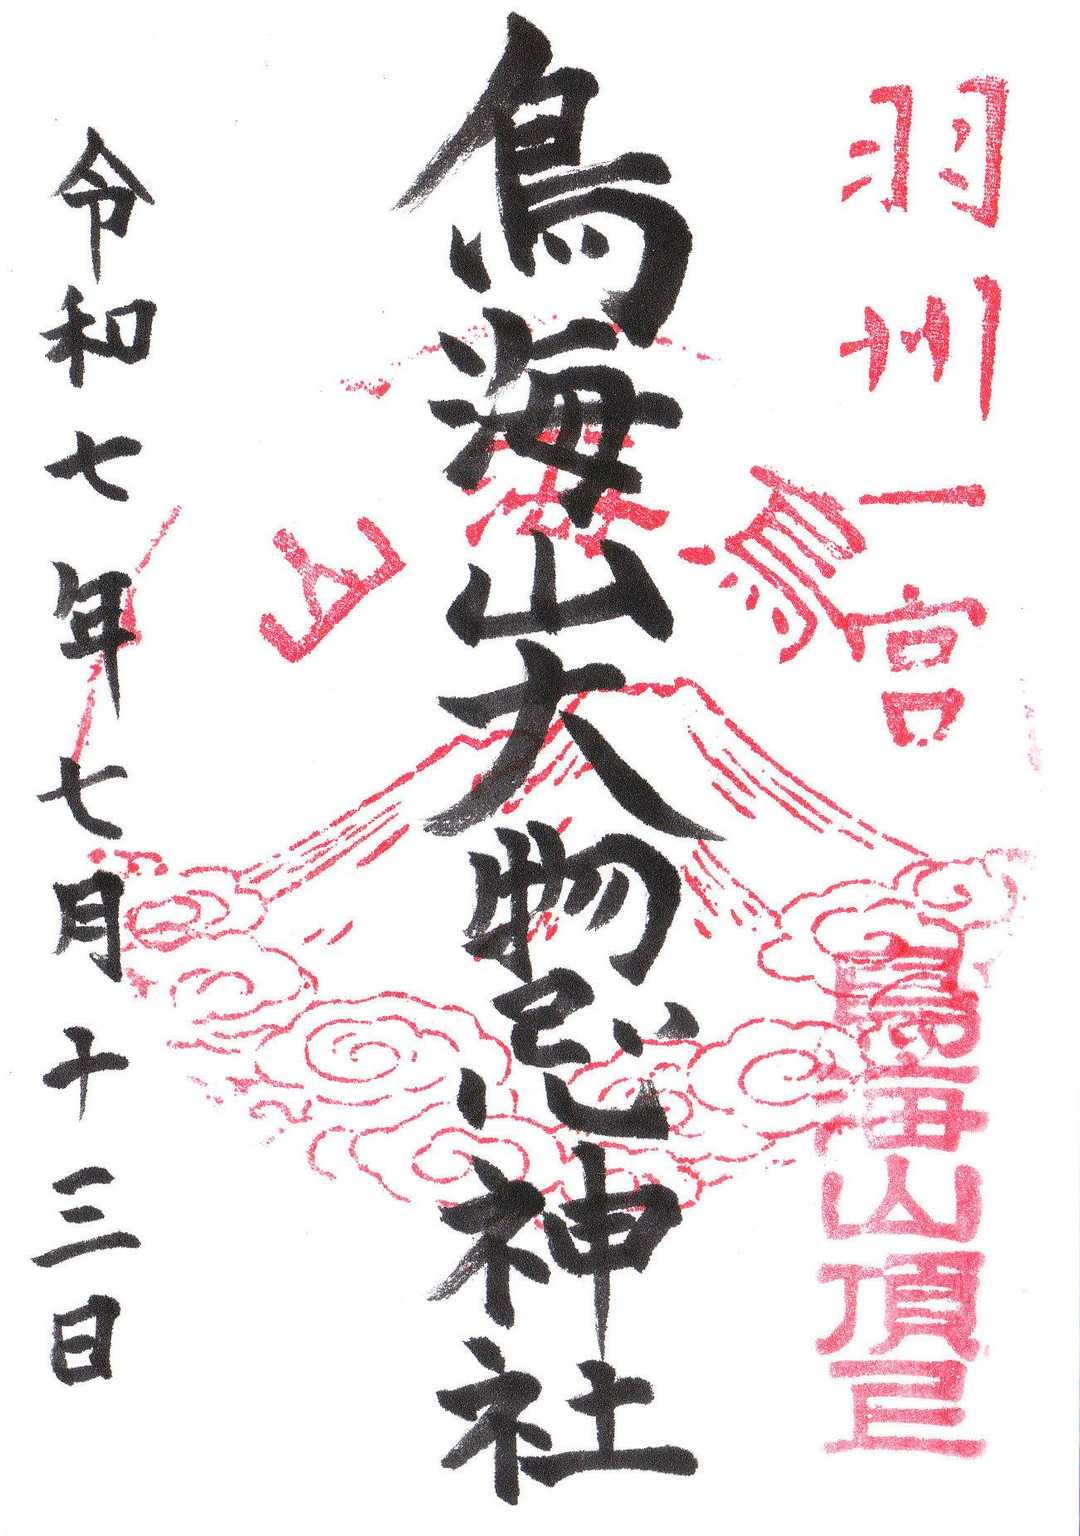 羽州一宮
鳥海山頂
鳥海山
鳥海山大物忌神社
令和七年七月十三日